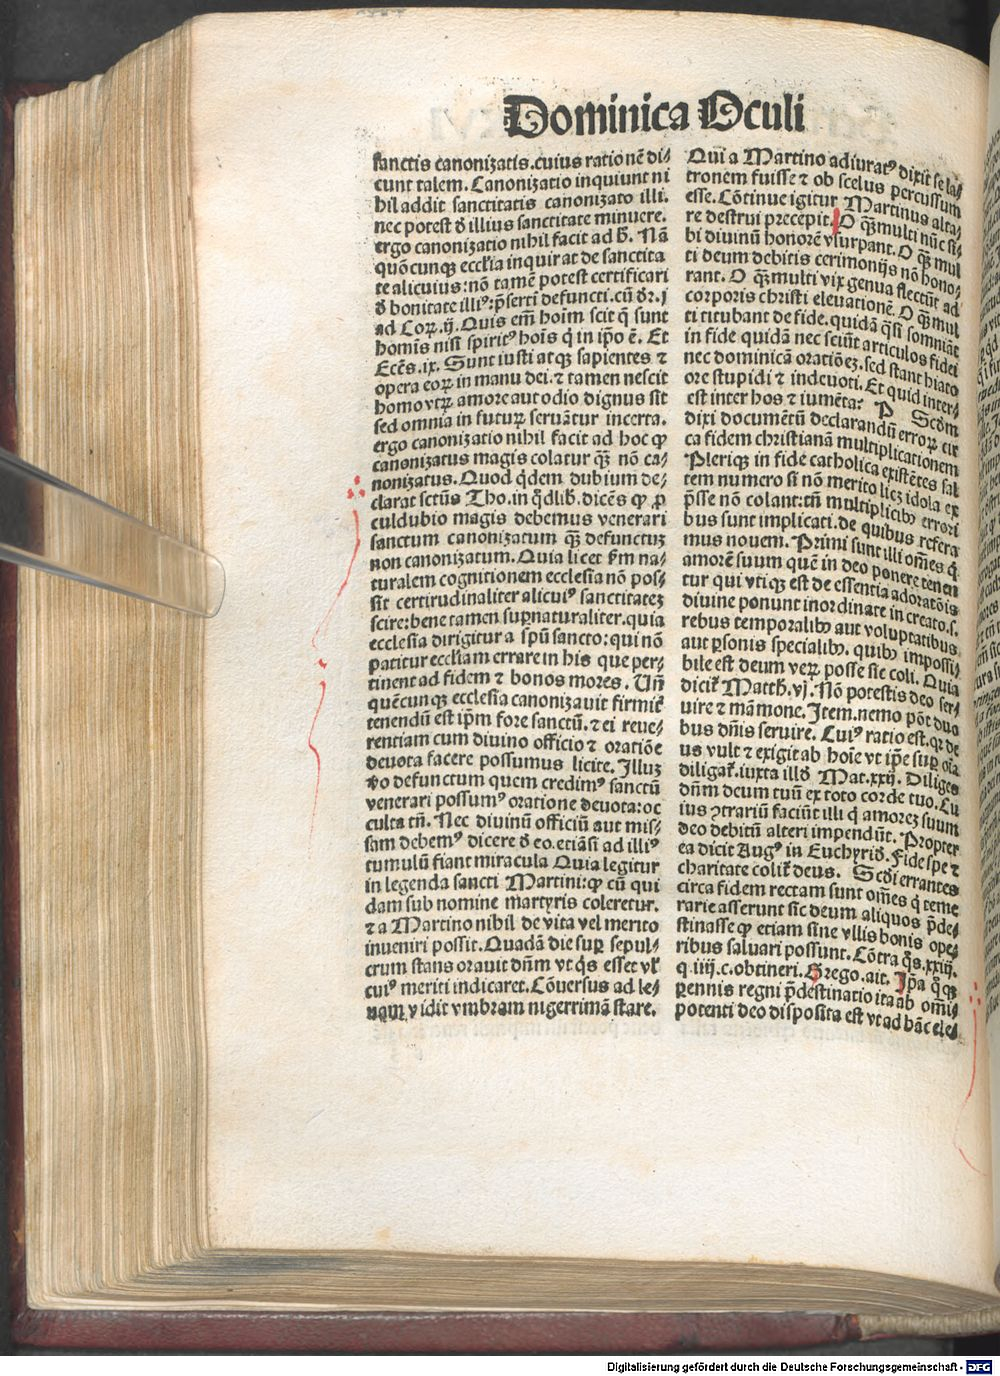 Dominica Oculi
sanctis canonizatis. cuius rationē di⸗
cunt talem. Canonizatio inquiunt ni
hil addit sanctitatis canonizato illi.
nec potest đ illius sanctitate minuere.
ergo canonizatio nihil facit ad ħ. Nā
quōcunqꝫ eccl'ia inquirat de sanctita
te alicuius: nō tamē potest certificari
đ bonitate illiꝰ: p̄serti defuncti. cū đr. j
ad Coꝝ. ij. Quis em̄ hoīm scit q̄ sunt
homīs nisi spiritꝰ hoīs q̇ in ip̄o ē. Et
Eccs̄. ix. Sunt iusti atqꝫ sapientes ⁊
opera eoꝝ in manu dei. ⁊ tamen nescit
homo vtꝝ amore aut odio dignus sit
sed omnia in futuꝝ seruātur incerta.
ergo canonizatio nihil facit ad hoc ꝙ
canonizatus magis colatur q̄ꝫ nō ca⸗
nonizatus. Quod q̇dem dubium de⸗
clarat sctūs Tho. in q̇dlib. dicēs ꝙ ꝓ
culdubio magis debemus venerari
sanctum canonizatum q̄ꝫ defunctuꝫ
non canonizatum. Quia licet ẜm na⸗
turalem cognitionem ecclesia nō pos⸗
sit certirudinaliter alicuiꝰ sanctitateꝫ
scire: bene tamen suꝑnaturaliter. quia
ecclesia dirigitur a sp̄u sancto: qui nō
ꝑatitur eccl'iam errare in his que per⸗
tinent ad fidem ⁊ bonos mores. Un̄
quēcunqꝫ ecclesia canonizauit firmit'
tenendū est ip̄m fore sanctū. ⁊ ei reue⸗
rentiam cum diuino officio ⁊ oratiōe
deuota facere possumus licite. Illuꝫ
v̓o defunctum quem credimꝰ sanctū
venerari possumꝰ oratione deuota: oc
culta tn̄. Nec diuinū officiū aut mis⸗
sam debemꝰ dicere đ eo. etiāsi ad illiꝰ
tumulū fiant miracula Quia legitur
in legenda sancti Martini: ꝙ cū qui
dam sub nomine martyris coleretur.
⁊ a Martino nihil de vita vel merito
inueniri possit. Quadā die suꝑ sepul⸗
crum stans orauit dn̄m vt q̇s esset vl'
cuiꝰ meriti indicaret. Cōuersus ad le⸗
uam vidit vmbram nigerrimā stare.
Qui a Martino adiuratꝰ dixit se la⸗
tronem fuisse ⁊ ob scelus percussum
esse. Cōtinue igitur Martinus alta⸗
re destrui precepit. O q̄ꝫ multi nūc si⸗
bi diuinū honorē vsurpant. O q̄ꝫ mul
ti deum debitis cerimonijs nō hono⸗
rant. O q̄ꝫ multi vix genua flectūt ad
corporis christi eleuationē. O q̄ꝫ mul
ti titubant de fide. quidā q̄si somniāt
in fide quidā nec sciūt articulos fidei
nec dominicā oratiōeꝫ. sed stant hiato
ore stupidi ⁊ indeuoti. Et quid inter⸗
est inter hos ⁊ iumēta? P Scđm
dixi documētū declarandū erroꝝ cir
ca fidem christianā multiplicationem
Pleriqꝫ in fide catholica existētes sal
tem numero si nō merito liceꝫ idola ex
p̄sse nō colant: tn̄ multiplicibꝰ errori
bus sunt implicati. de quibus refera
mus nouem. Primi sunt illi om̄es q̇
amorē suum quē in deo ponere tenen
tur qui vtiqꝫ est de essentia adoratōis
diuine ponunt inordinate in creato. s.
rebus temporalibꝰ aut voluptatibus
aut ꝑsonis specialibꝰ. quibꝰ impossi⸗
bile est deum veꝝ posse sic coli. Quia
dicit' Matth. vj. Nō potestis deo ser⸗
uire ⁊ māmone. Item. nemo pōt duo
bus dn̄is seruire. Cuiꝰ ratio est. qꝛ de
us vult ⁊ exigit ab hoīe vt ip̄e suꝑ oīa
diligat'. iuxta illđ Mat. xxij. Diliges
dn̄m deum tuū ex toto corde tuo. Cu
ius ꝯtrariū faciūt illi q̇ amoreꝫ suum
deo debitū alteri impendūt. Propter
ea dicit Augꝰ in Euchyriđ. Fide spe ⁊
charitate colit' deus. Scđi errantes
circa fidem rectam sunt om̄es q̇ teme
rarie asserunt sic deum aliquos p̄de⸗
stinasse ꝙ etiam sine vllis bonis ope⸗
ribus saluari possunt. Cōtra q̇s. xxiij.
q. iiij. c. obtineri. Grego. ait. Ip̄a q̇qꝫ
ꝑennis regni p̄destinatio ita ab om̄i⸗
potenti deo disposita est vt ad hāc ele⸗
Digitalisierung gefördert durch die Deutsche Forschungsgemeinschaft - DFG